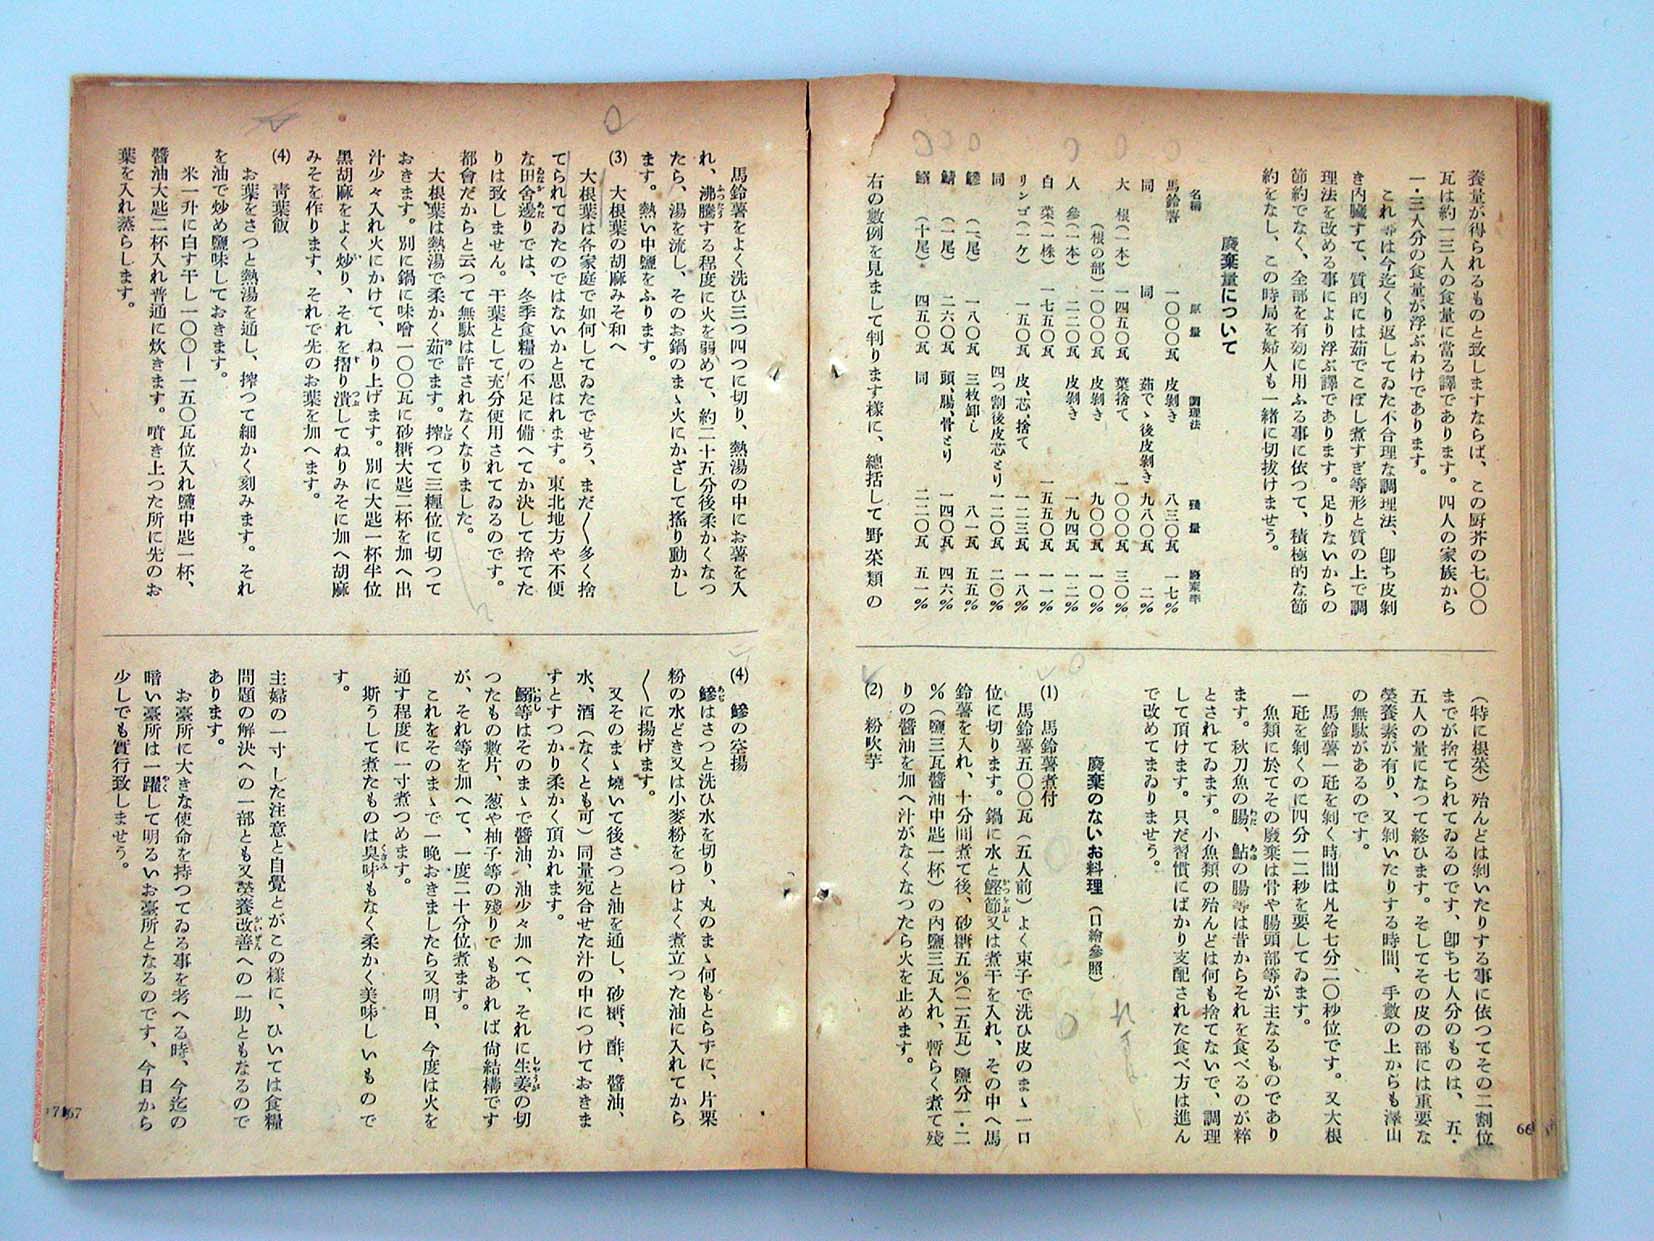 養量が得られるものと致しますならば、この厨芥の七〇〇
瓦は約一三人の食量に當る譯であります。四人の家族から
一・三人分の食量が浮ぶわけであります。
これ等は今迄くり返してゐた不合理な調理法、卽ち皮剝
き內臟すて、質的には茹でこぼし煮すぎ等形と質の上で調
理法を改める事により浮ぶ譯であります。足りないからの
節約でなく、全部を有効に用ふる事に依つて、積極的な節
約をなし、この時局を婦人も一緒に切拔けませう。
廢棄量について
名稱 原量 調理法 殘量 廢棄率
馬鈴薯 一〇〇〇瓦 皮剝き 八三〇瓦 一七%
同 同 茹でゝ後皮剝き 九八〇瓦 二%
大根(一本) 一四五〇瓦 葉捨て 一〇〇〇瓦 三〇%
(根の部) 一〇〇〇瓦 皮剝き 九〇〇瓦 一〇%
人參(一本) 二二〇瓦 皮剝き 一九四瓦 一二%
白菜(一株) 一七五〇瓦 一五五〇瓦 一一%
リンゴ(一ケ) 一五〇瓦 皮、芯、捨て 一二三瓦 一八%
同 四つ割後皮芯とり 一二〇瓦 二〇%
鯵(二尾) 一八〇瓦 三枚卸し 八一瓦 五五%
鯖(一尾) 二六〇瓦 頭、腸、骨とり 一四〇瓦 四六%
鰯(十尾) 四五〇瓦 同 二二〇瓦 五一%
右の數例を見まして判ります樣に、總括して野菜類の
(特に根菜)殆んどは剝いたりする事に依つてその二割位
までが捨てられてゐるのです、卽ち七人分のものは、五・
五人の量になつて終ひます。そしてその皮の部には重要な
榮養素が有り、又剝いたりする時間、手數の上からも澤山
の無駄があるのです。
馬鈴薯一瓩を剝く時間は凡そ七分二〇秒位です。又大根
一瓩を剝くのに四分一二秒を要してゐます。
魚類に於てその廢棄は骨や腸頭部等が主なるものであり
ます。秋刀魚の腸、鮎の腸等は昔からそれを食べるのが粹
とされてゐます。小魚類の殆んどは何も捨てないで、調理
して頂けます。只だ習慣にばかり支配された食べ方は進ん
で改めてまゐりませう。
廢棄のないお料理(口繪參照)
(1) 馬鈴薯煮付
馬鈴薯五〇〇瓦(五人前)よく束子で洗ひ皮のまゝ一口
位に切ります。鍋に水と鰹節又は煮干を入れ、その中へ馬
鈴薯を入れ、十分間煮て後、砂糖五%(二五瓦)鹽分一・二
%(鹽三瓦醬油中匙一杯)の內鹽三瓦入れ、暫らく煮て殘
りの醬油を加へ汁がなくなつたら火を止めます。
(2) 粉吹芋
66
馬鈴薯をよく洗ひ三つ四つに切り、熱湯の中にお薯を入
れ、沸騰する程度に火を弱めて、約二十五分後柔かくなつ
たら、湯を流し、そのお鍋のまゝ火にかざして搖り動かし
ます。熱い中鹽をふります。
(3) 大根葉の胡麻みそ和へ
大根葉は各家庭で如何してゐたでせう、まだ〱多く捨
てられてゐたのではないかと思はれます。東北地方や不便
な田舍邊りでは、冬季食糧の不足に備へてか決して捨てた
りは致しません。干葉として充分使用されてゐるのです。
都會だからと云つて無駄は許されなくなりました。
大根葉は熱湯で柔かく茹でます。搾つて三糎位に切つて
おきます。別に鍋に味噌一〇〇瓦に砂糖大匙二杯を加へ出
汁少々入れ火にかけて、ねり上げます。別に大匙一杯半位
黑胡麻をよく炒り、それを摺り潰してねりみそに加へ胡麻
みそを作ります、それで先のお葉を加へます。
(4) 靑葉飯
お葉をさつと熱湯を通し、搾つて細かく刻みます。それ
を油で炒め鹽味しておきます。
米一升に白す干し一〇〇—一五〇瓦位入れ鹽中匙一杯、
醬油大匙二杯入れ普通に炊きます。噴き上つた所に先のお
葉を入れ蒸らします。
(4) 鯵の空揚
鯵はさつと洗ひ水を切り、丸のまゝ何もとらずに、片栗
粉の水どき又は小麥粉をつけよく煮立つた油に入れてから
〱に揚げます。
又そのまゝ燒いて後さつと油を通し、砂糖、酢、醬油、
水、酒(なくとも可)同量宛合せた汁の中につけておきま
すとすつかり柔かく頂かれます。
鰯等はそのまゝで醬油、油少々加へて、それに生姜の切
つたもの數片、葱や柚子等の殘りでもあれば尙結構です
が、それ等を加へて、一度二十分位煮ます。
これをそのまゝで一晩おきましたら又明日、今度は火を
通す程度に一寸煮つめます。
斯うして煮たものは臭味もなく柔かく美味しいもので
す。
主婦の一寸した注意と自覺とがこの樣に、ひいては食糧
問題の解決への一部とも又榮養改善への一助ともなるので
あります。
お臺所に大きな使命を持つてゐる事を考へる時、今迄の
暗い臺所は一躍して明るいお臺所となるのです、今日から
少しでも實行致しませう。
67